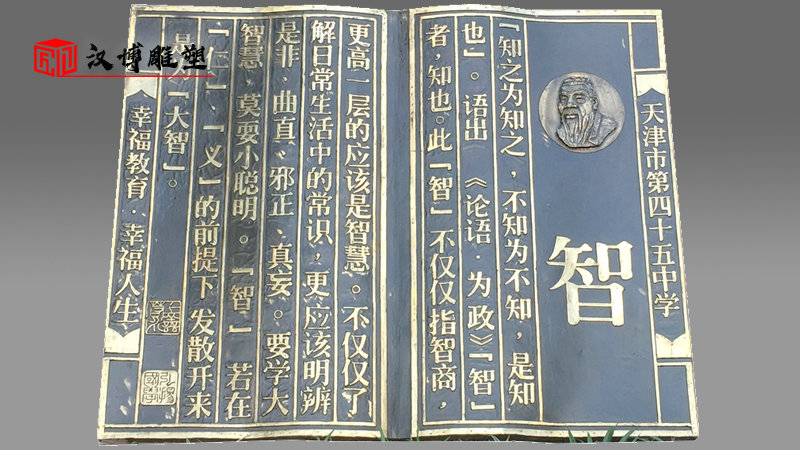 汉博雕塑
天津市第四十五中学
智
『知之为知之，不知为不知，是知
也』。语出《论语·为政》『智』
者，知也。此『智』不仅仅指智商，
更高一层的应该是智慧。不仅仅了
解日常生活中的常识，更应该明辨
是非、曲直、邪正、真妄。要学大
智慧，莫耍小聪明。『智』若在
『仁』、『义』的前提下发散开来
是『大智』。
幸福教育·幸福人生